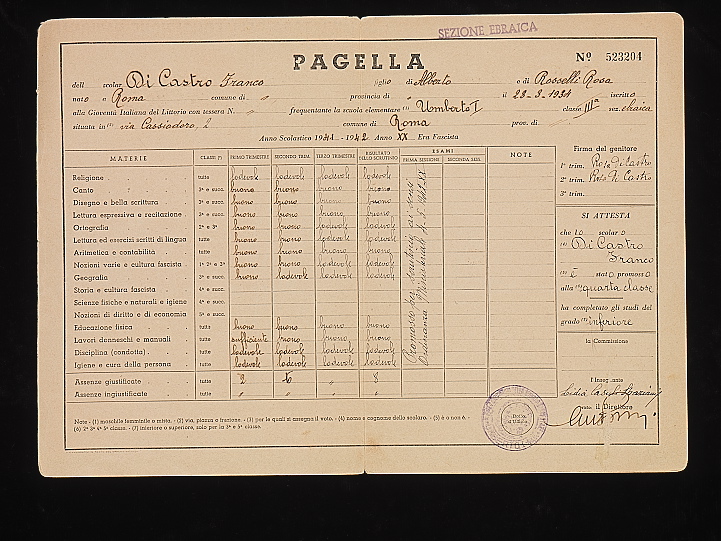 SEZIONE EBRAICA
PAGELLA
Nº 523204
dell scolar Di Castro Franco figlio di Alberto e di Roscelli Rosa
nato a Roma comune di " provincia di " il 23-3-1934 iscritto
alla Gioventù Italiana del Littorio con tessera N. " frequentante la scuola elementare (1) Umberto I classe IIIª sez. ebraica
situata in (2) via Cassiodoro, 2 comune di Roma prov. di
Anno Scolastico 1941 - 1942 Anno XX Era Fascista
MATERIE CLASSE PRIMO TRIMESTRE SECONDO TRIM. TERZO TRIMESTRE RISULTATO DELLO SCRUTINIO ESAMI PRIMA SESSIONE SECONDA SESS. NOTE
Religione tutte lodevole lodevole lodevole lodevole
Canto 3ª e succ. buono buono buono buono
Disegno e bella scrittura 3ª e succ. buono buono buono buono
Lettura espressiva e recitazione 3ª e succ. buono buono buono buono
Ortografia 2ª e 3ª buono buono lodevole lodevole
Lettura ed esercizi scritti di lingua tutte buono buono lodevole lodevole
Aritmetica e contabilità tutte buono buono buono buono
Nozioni varie e cultura fascista 1ª 2ª e 3ª buono buono lodevole lodevole
Geografia 3ª e succ. buono lodevole lodevole lodevole
Storia e cultura fascista 4ª e succ.
Scienze fisiche e naturali e igiene 4ª e succ.
Nozioni di diritto e di economia 5ª e succ.
Educazione fisica tutte buono buono buono buono
Lavori donneschi e manuali tutte sufficiente buono buono buono
Disciplina (condotta) tutte lodevole lodevole lodevole lodevole
Igiene e cura della persona tutte lodevole lodevole lodevole lodevole
Assenze giustificate tutte 2 6 " 8
Assenze ingiustificate tutte " " " "
Promosso per scrutinio ai sensi
Ordinanza Ministeriale
Firma del genitore
1º trim. Rosa Di Castro
2º trim. Rosa Di Castro
3º trim.
SI ATTESTA
che lo scolaro
(4) Di Castro
Franco
(5) è stato promosso
alla (6) quarta classe
ha completato gli studi del
grado (7) inferiore
la Commissione
l'Insegnante
il Direttore
Note - (1) maschile femminile o mista. - (2) via, piazza o frazione. - (3) per le quali si assegna il voto. - (4) nome e cognome dello scolaro. - (5) è o non è. -
(6) 2ª 3ª 4ª 5ª classe. - (7) inferiore o superiore, solo per la 3ª e 5ª classe.